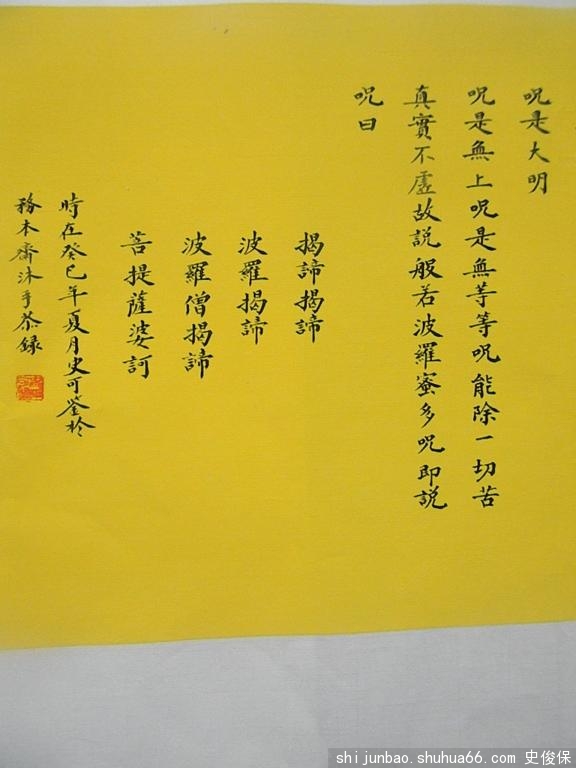 呪是大明
呪是無上呪是無等等呪能除一切苦
真實不虛故説般若波羅蜜多呪即説
呪曰
揭諦揭諦
波羅揭諦
波羅僧揭諦
菩提薩婆訶
時在癸巳年夏月史可鉴於
務本齋沐手恭録
shijunbao.shuhua66.com 史俊保